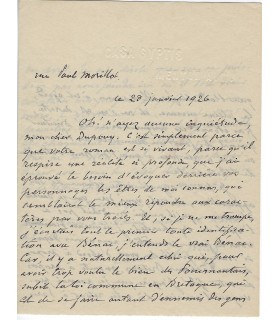 rue Paul Morillot
le 28 janvier 1926
Oh! n'ayez aucune inquiétude
mon cher Dupouy. C'est simplement parce
que votre roman est si vivant, parce qu'il
respire une réalité si profonde que j'ai
éprouvé le besoin d'évoquer derrière vos
personnages les têtes de moi connues, qui
semblaient le mieux répondre aux carac-
tères par vous traités. Et, si je ne me trompe,
j'écartais tout le premier toute identifica-
tion avec Bénac, j'entends le vrai Bénac
Car, il y a naturellement celui qui, pour
avoir trop voulu le bien des
subit la loi commune en Bretagne, qui
est de se faire autant d'ennemis des gens